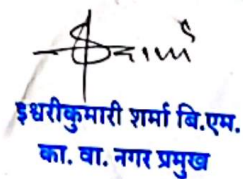 इश्वरीकुमारी शर्मा बि.एम.
का. वा. नगर प्रमुख